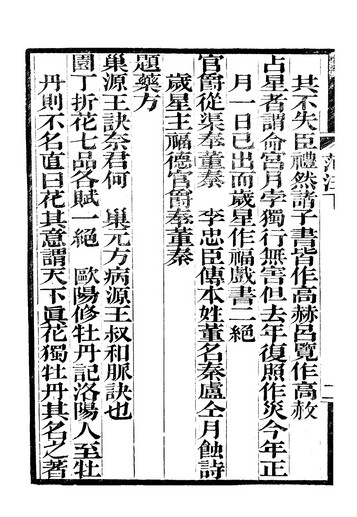 共不失臣禮然諸子書皆作高赫呂覽作高赦
占星者謂命宮月孛獨行無害但去年復照作災今年正
月一日已出而歲星作福戲書二絕
官爵從渠奉董秦　李忠臣傳本姓董名秦盧仝月蝕詩
歲星主福德官爵奉董秦
題藥方
巢源王訣奈君何　巢元方病源王叔和脈訣也
園丁折花七品各賦一絕　歐陽修牡丹記洛陽人至牡
丹則不名直曰花其意謂天下眞花獨牡丹其名之著
范注下
二